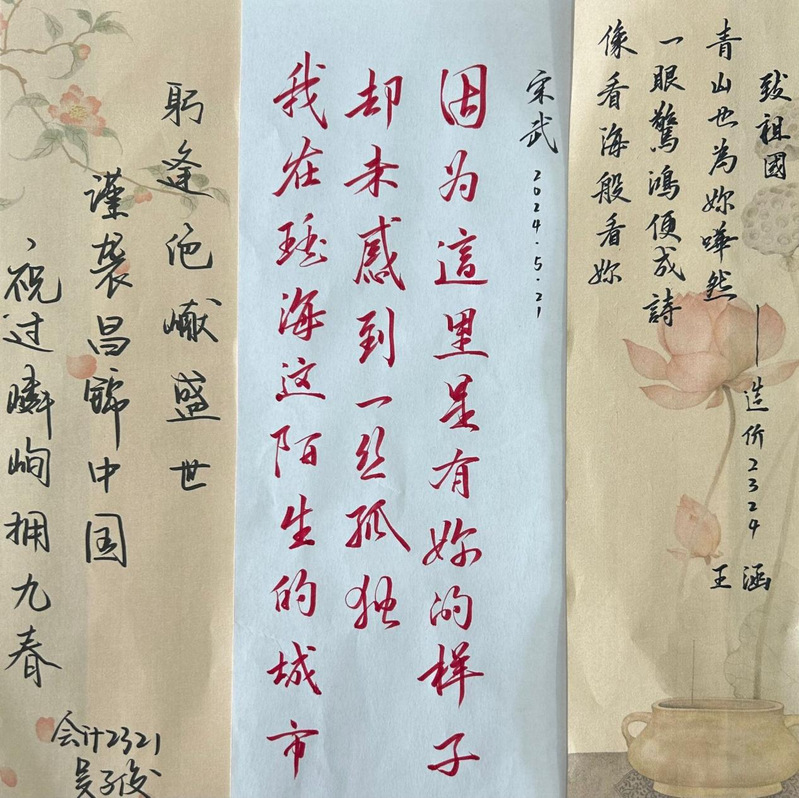 致祖國
青山也為妳嘩然
一眼驚鴻便成詩
像看海般看妳
——造价2324
王涵
我在瑶海这陌生的城市
却未感到一丝孤独
因为這里是有妳的样子
宋武 2024.5.21
躬逢巘盛世
谨袭昌锦中国
、祝过嶙峋拥九春
会计2321
吴子俊